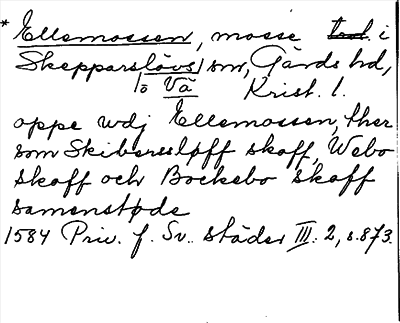 * Ellemossen, mosse i
Skepparslövs sn, Gärds hd,
Vä Krist. l.
oppe wdj Ellemossen, ther
som Skibersløff skoff, Webo
skoff och Bockebo skoff
samenstøde
1584 Priv. f. Sv. städer III: 2, s. 873.